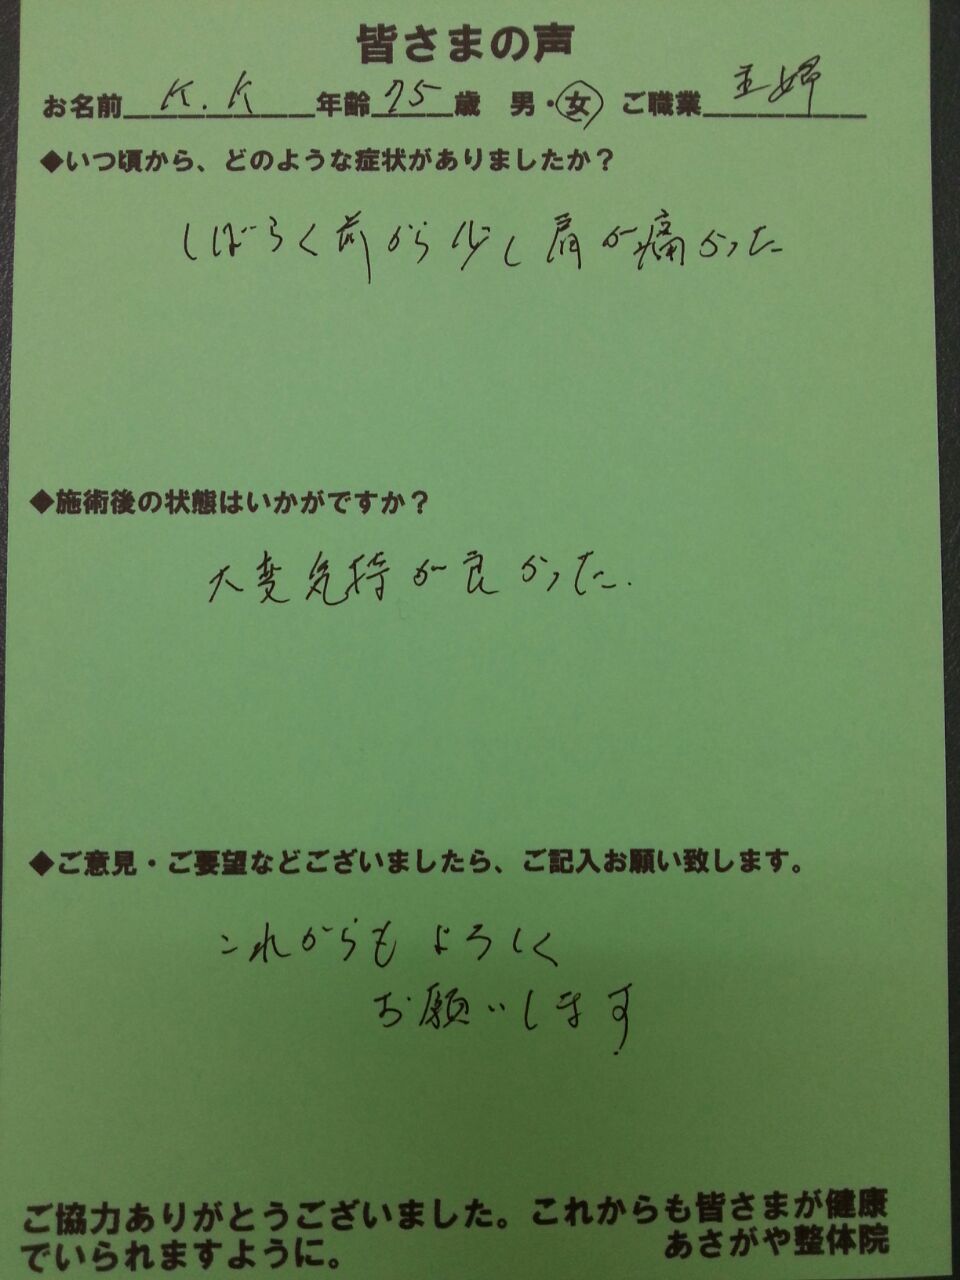 皆さまの声
お名前 K.K 年齢 75 歳 男・女 ご職業 主婦
◆いつ頃から、どのような症状がありましたか？
しばらく前から少し肩が痛かった
◆施術後の状態はいかがですか？
大変気持が良かった.
◆ご意見・ご要望などございましたら、ご記入お願い致します。
これからもよろしく
お願いします
ご協力ありがとうございました。これからも皆さまが健康
でいられますように。 あさがや整体院